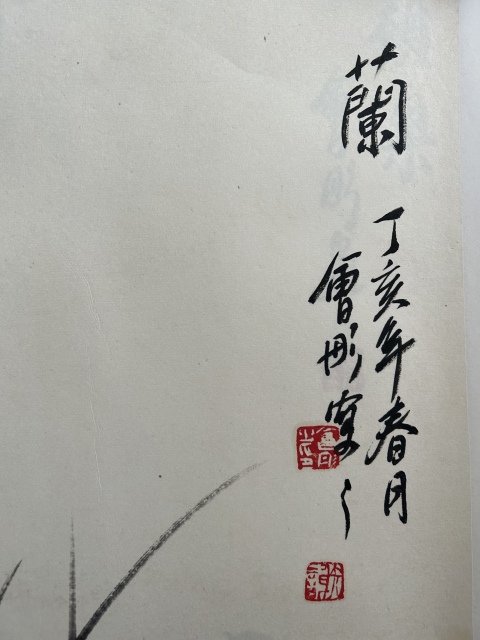 蘭
丁亥年春月
會彤寫之